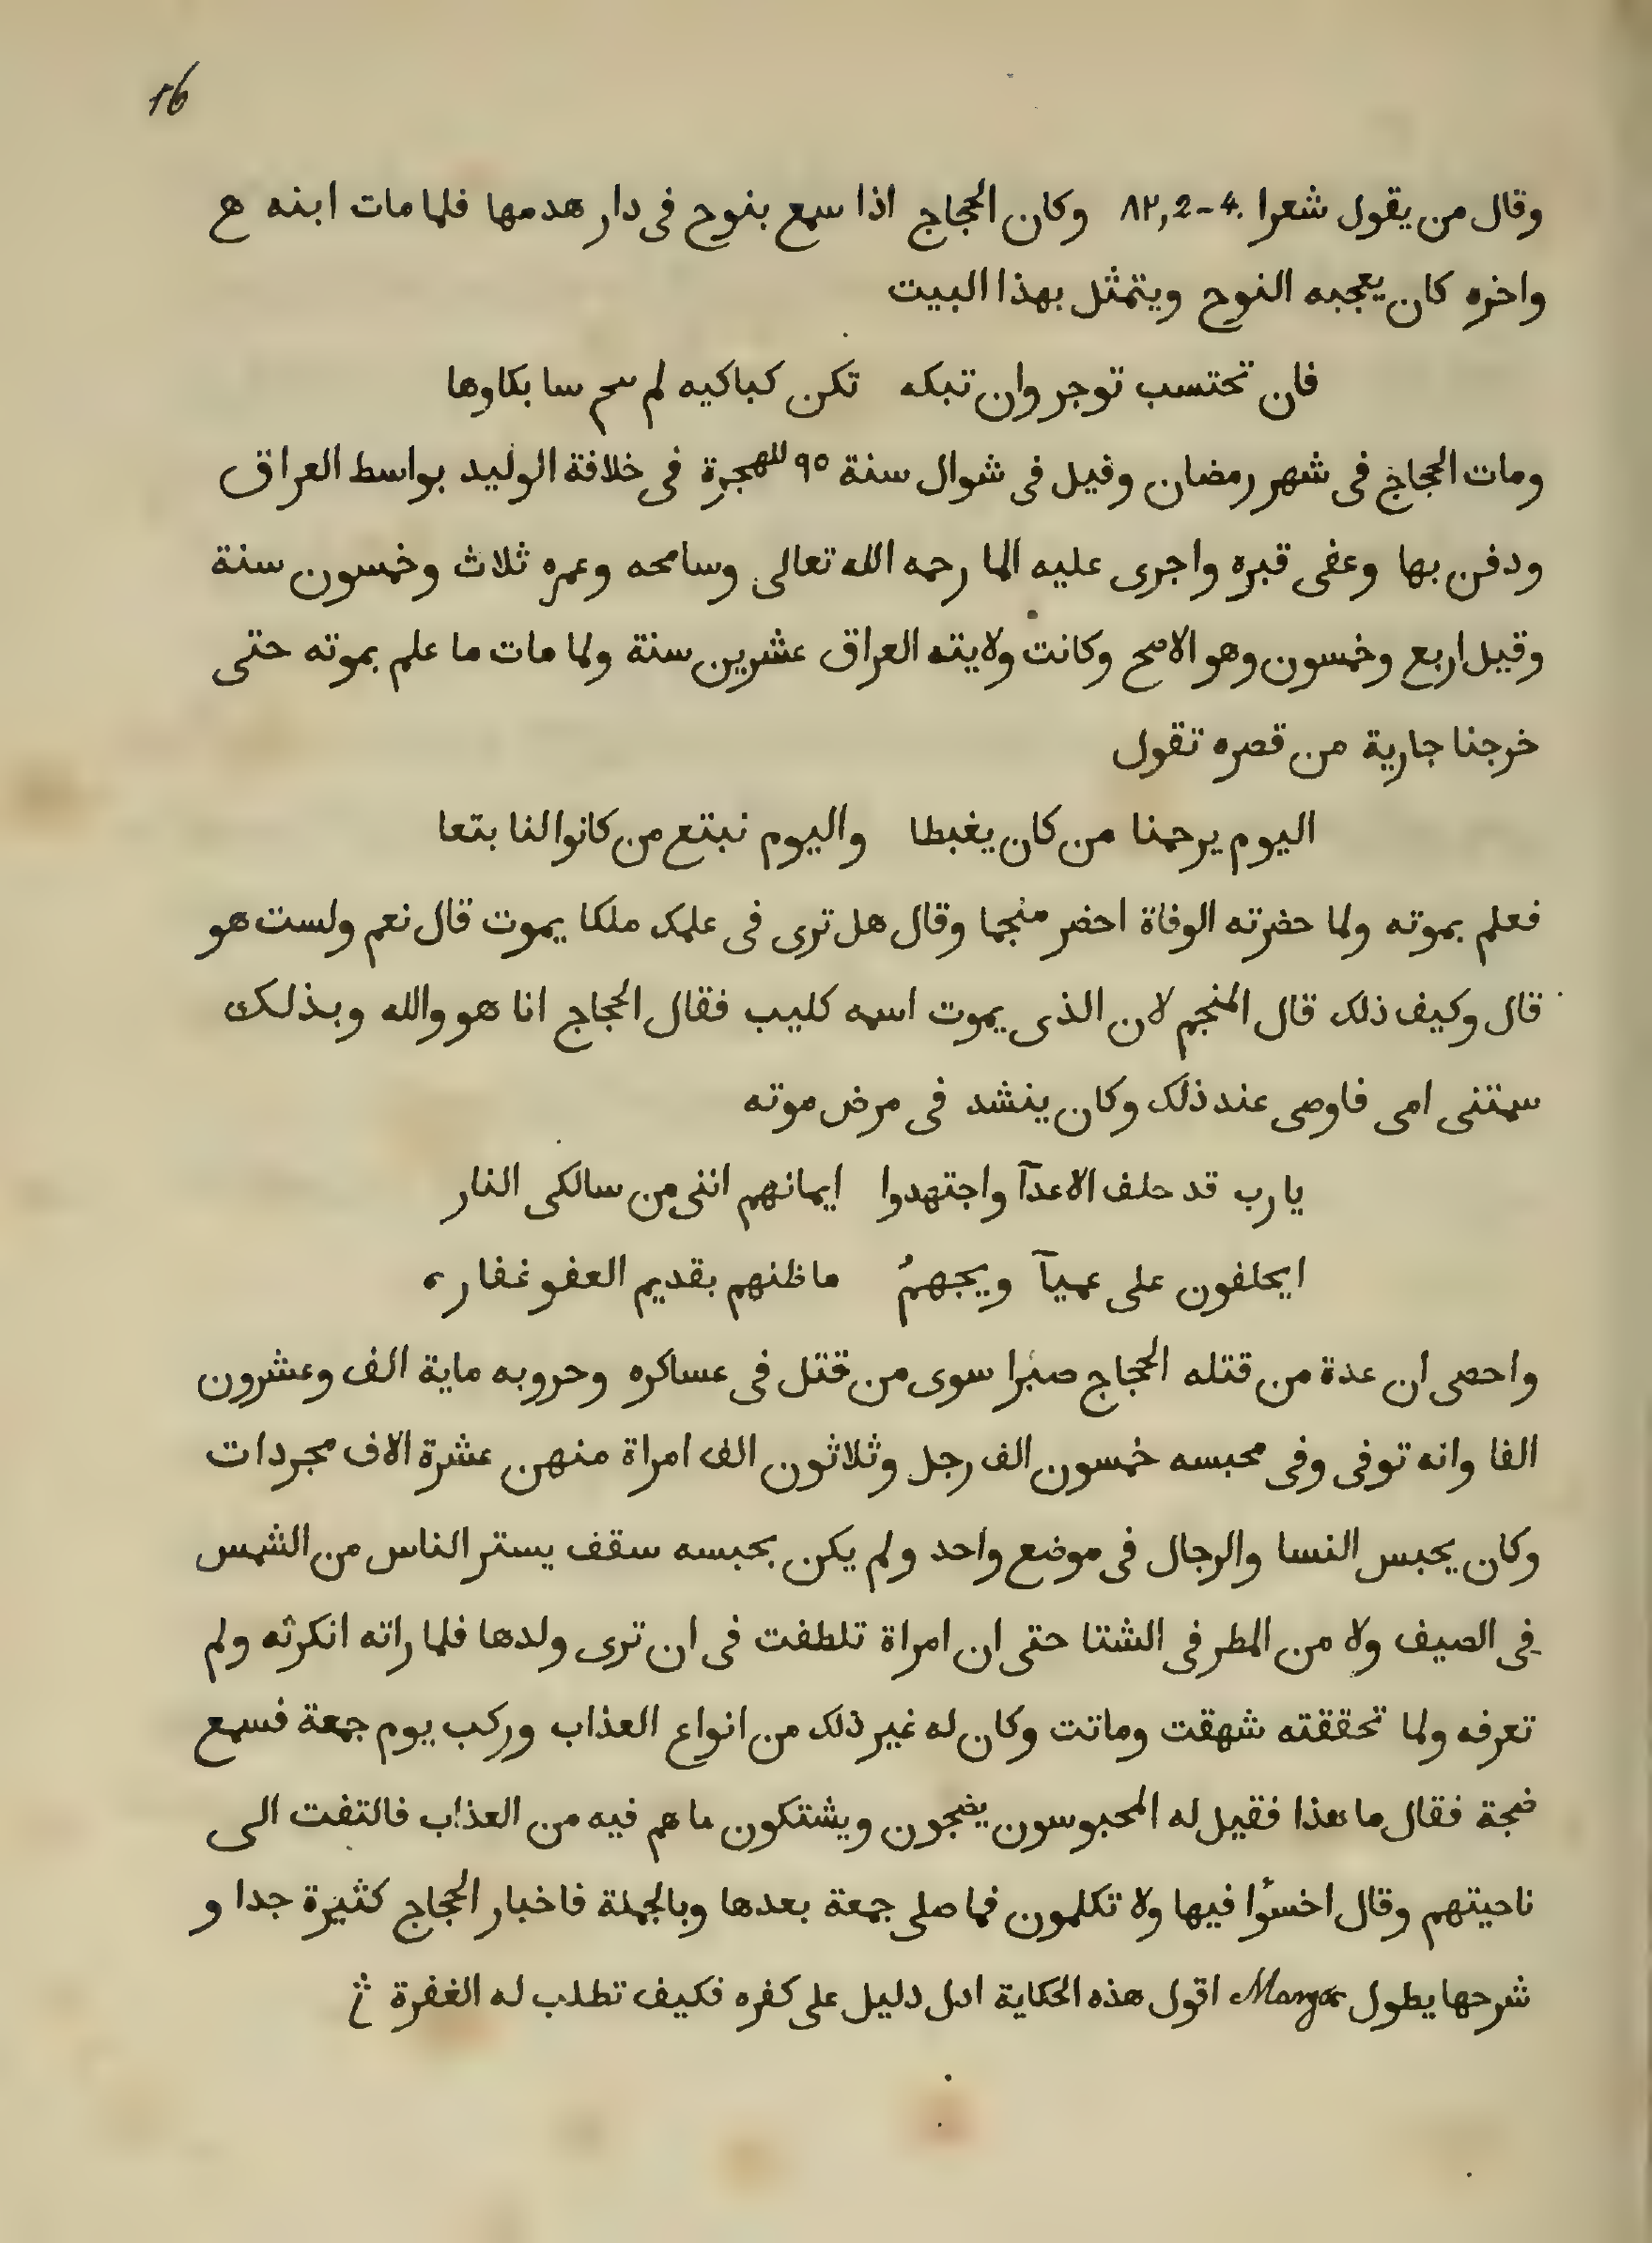 16
وقال من يقول شعرا .4-2 ,٨٢ وكان الحجاج اذا سمع بنوح فى دار هدمها فلما مات ابنه مح
واخره كان يعجبه النوح ويتمثل بهذا البيت
فان تحتسب توجر وان تبكه تكن كباكيه لم بكاوها
ومات الحجاج فى شهر رمضان وقيل فى شوال سنة ٩٥ للهجرة فى خلافة الوليد بواسط العراق
ودفن بها وعفى قبره واجرى عليه الما رحمه الله تعالى وسامحه وعمره ثلاث وخمسون سنة
وقيل اربع وخمسون وهو الاصح وكانت ولايته العراق عشرين سنة ولما مات ما علم بموته حتى
خرجنا جارية من قصره تقول
اليوم يرحمنا من كان يغبطا واليوم نبتع من كانوا لنا بتعا
فعلم بموته ولما حضرته الوفاة احضر منجما وقال هل ترى فى علمك ملكا يموت قال نعم ولست هو
قال وكيف ذلك قال المنجم لان الذى يموت اسمه كليب فقال الحجاج انا هو والله وبذلك
سمتنى امى فاوصى عند ذلك وكان ينشد فى مرض موته
يا رب قد حلف الاعدآ واجتهدوا ايمانهم اننى من سالكى النار
ايحلفون على عميآ ويجهمُ ما ظنهم بقديم العفو غفار
واحصى ان عدة من قتله الحجاج صبرا سوى من قتل فى عساكره وحروبه ماية الف وعشرون
الفا وانه توفى وفى محبسه خمسون الف رجل وثلاثون الف امراة منهن عشرة الاف مجردات
وكان يحبس النسا والرجال فى موضع واحد ولم يكن بحبسه سقف يستر الناس من الشمس
فى الصيف ولا من المطر فى الشتا حتى ان امراة تلطفت فى ان ترى ولدها فلما راته انكرته ولم
تعرفه ولما تحققته شهقت وماتت وكان له غير ذلك من انواع العذاب وركب يوم جمعة فسمع
ضجة فقال ما هذا فقيل له المحبوسون يضجون ويشتكون ما هم فيه من العذاب فالتفت الى
ناحيتهم وقال اخسؤا فيها ولا تكلمون فما صلى جمعة بعدها وبالجملة فاخبار الحجاج كثيرة جدا و
شرحها يطول اقول هذه الحكاية ادل دليل على كفره فكيف تطلب له الغفرة